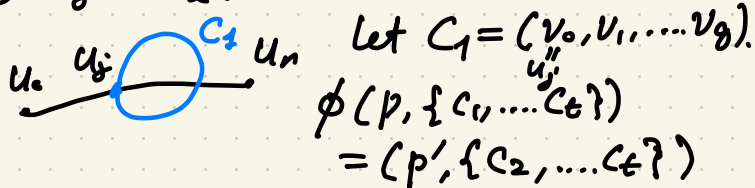 C₁
u₀ uⱼ uₙ
Let C₁ = (v₀, v₁, .... v_g).
"
uⱼ
ϕ(p, {c₁, .... c_t})
= (p', {C₂, .... C_t})